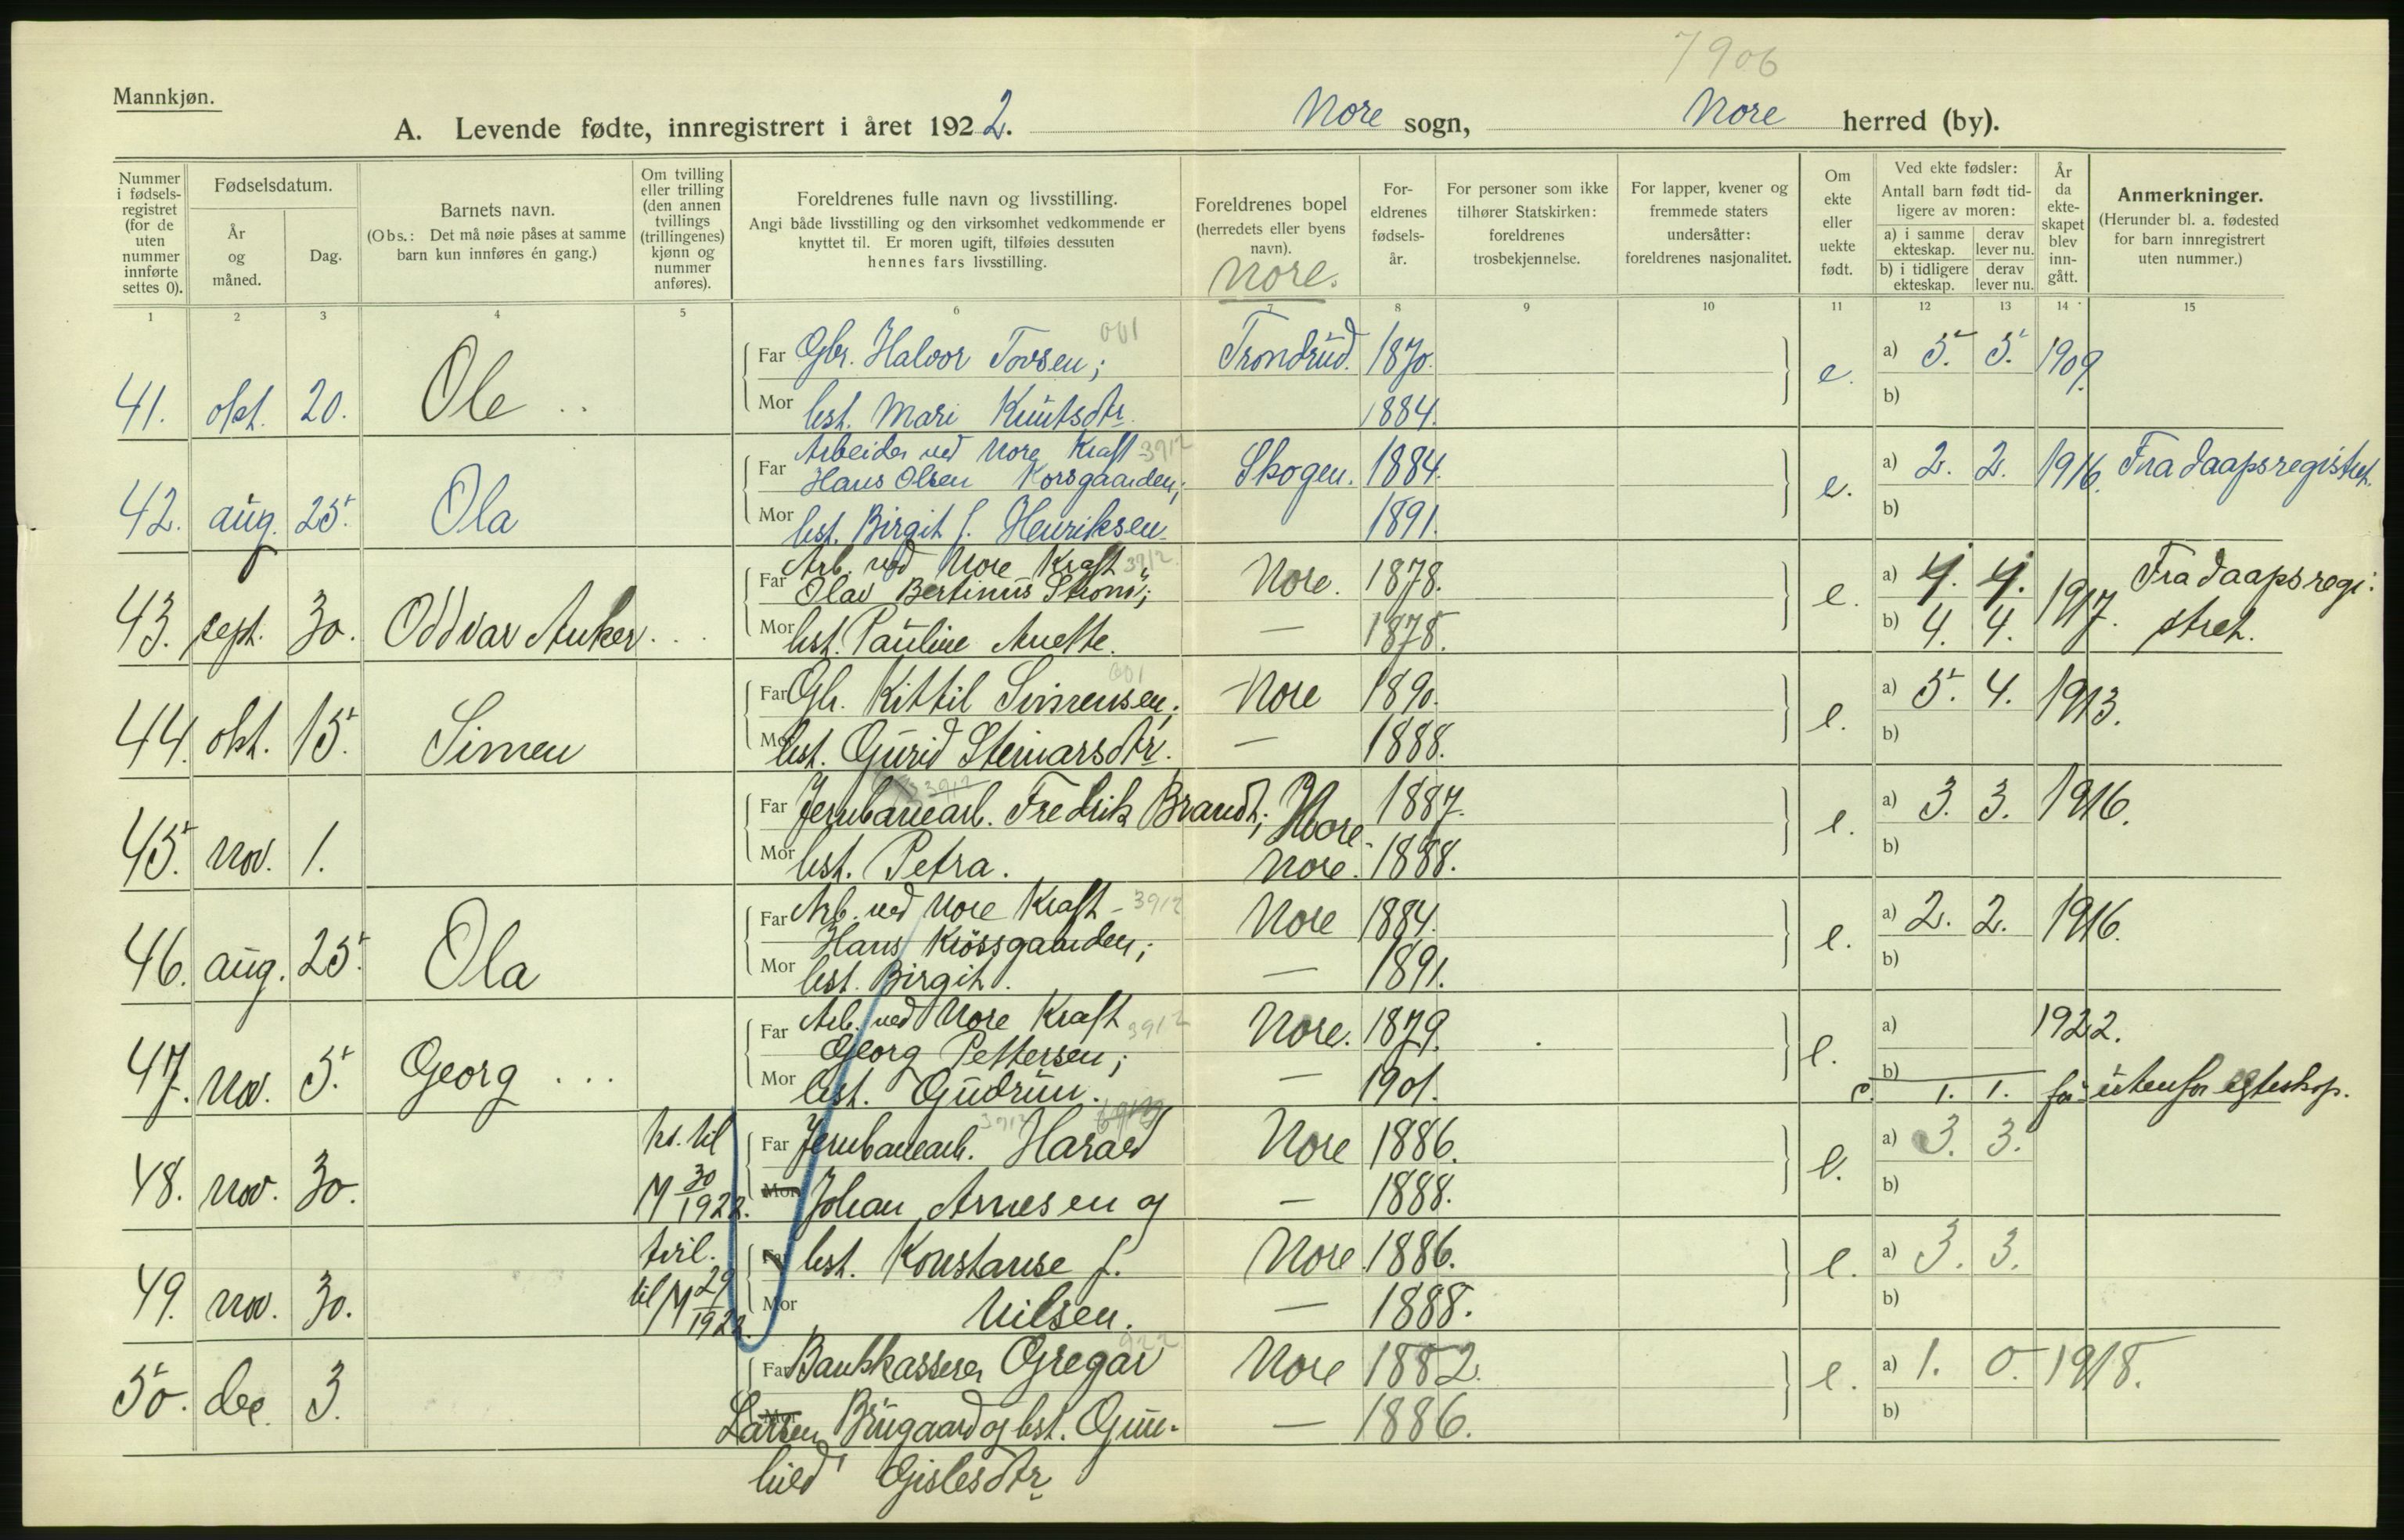 7906
Mannkjøn.
A. Levende fødte, innregistrert i året 1922. Nore sogn, Nore herred (by).
Nummer i fødsels-registret (for de uten nummer innførte settes 0).
Fødselsdatum.
År og måned.
Dag.
Barnets navn.
(Obs.: Det må nøie påses at samme barn kun innføres én gang.)
Om tvilling eller trilling (den annen tvillings (trillingenes) kjønn og nummer anføres).
Foreldrenes fulle navn og livsstilling.
Angi både livsstilling og den virksomhet vedkommende er knyttet til. Er moren ugift, tilføies dessuten hennes fars livsstilling.
Foreldrenes bopel (herredets eller byens navn).
Nore.
For-eldrenes fødsels-år.
For personer som ikke tilhører Statskirken: foreldrenes trosbekjennelse.
For lapper, kvener og fremmede staters undersåtter: foreldrenes nasjonalitet.
Om ekte eller uekte født.
Ved ekte fødsler:
Antall barn født tid-ligere av moren:
a) i samme ekteskap. derav lever nu.
b) i tidligere ekteskap. derav lever nu.
År da ekte-skapet blev inn-gått.
Anmerkninger.
(Herunder bl. a. fødested for barn innregistrert uten nummer.)
1 2 3 4 5 6 7 8 9 10 11 12 13 14 15
001
41. okt. 20. Ole .. Far Gbr. Halvor Tovsen; Trondrud. 1870. e. a) 5. 5. 1909.
Mor hst. Mari Knutsdtr. 1884. b)
Arbeider ved Nore Kraft 3912
42. aug. 25. Ola Far Hans Olsen Korsgaarden; Skogen. 1884. e. a) 2. 2. 1916. Fra daapsregistret.
Mor hst. Birgit f. Henriksen 1891. b)
Arb. ved Nore Kraft 3912
43. sept. 30. Oddvar Anker ... Far Olav Bertinus Strøm; Nore. 1878. e. a) 4. 4. 1917. Fra daapsregi-
Mor hst. Pauline Anette. — 1878. b) 4. 4. stret.
001
44. okt. 15. Simen Far Gbr. Kittil Simensen; Nore 1890. e. a) 5. 4. 1913.
Mor hst. Gurid Steinarsdtr. — 1888. b)
3912
45. nov. 1. Far Jernbanearb. Fredrik Brandt; Nore 1887. e. a) 3. 3. 1916.
Mor hst. Petra. Nore. 1888. b)
Arb. ved Nore Kraft - 3912
46. aug. 25. Ola Far Hans Korssgaarden; Nore 1884. e. a) 2. 2. 1916.
Mor hst. Birgit. — 1891. b)
Arb. ved Nore Kraft 3912
47. nov. 5. Georg ... Far Georg Pettersen; Nore. 1879. e. a) 1922.
Mor hst. Gudrun. — 1901. b)
c. 1. 1. før utenfor egteskap.
3912
48. nov. 30. tv. til M 30/1922. Far Jernbanearb. Harald Nore 1886. e. a) 3. 3.
Mor Johan Arnesen og — 1888. b)
49. nov. 30. tvil. til M 29/1922. Far hst. Konstanse f. Nore 1886. e. a) 3. 3.
Mor Nilsen. — 1888. b)
922
50. dec. 3. Far Bankkasserer Gregar Nore 1882. e. a) 1. 0. 1918.
Mor Larsen Brugaard og hst. Gun- — 1886. b)
hild Gislesdtr.